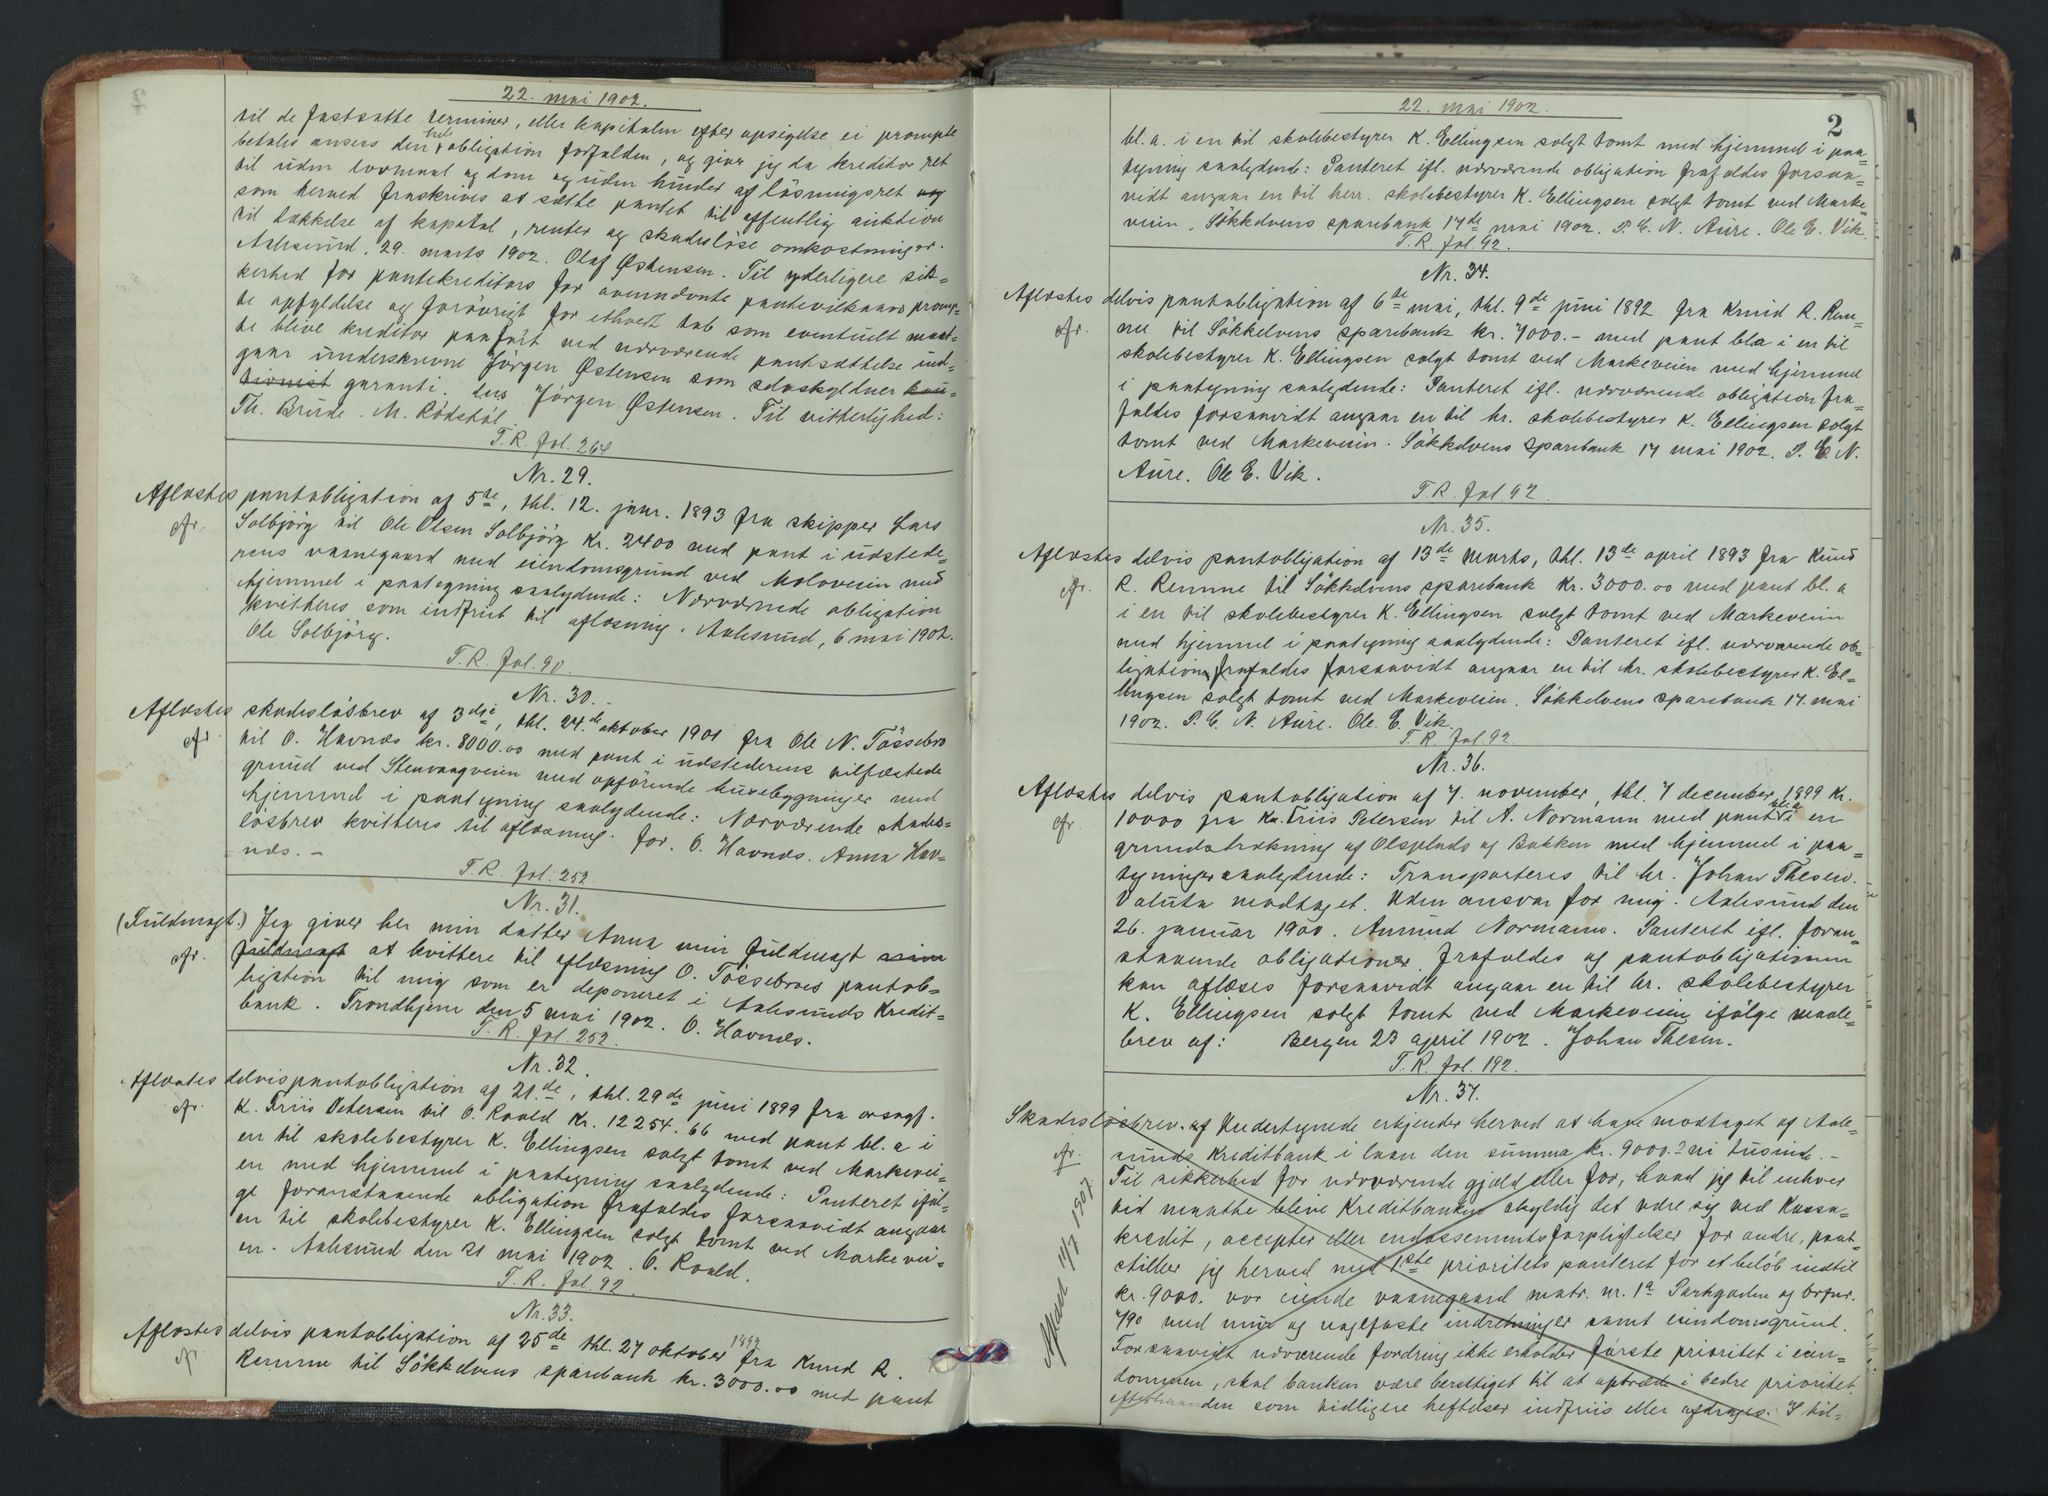 22. mai 1902.
til de fastsatte terminer, eller kapitalen efter opsigelse ei prompte
betales ansees den hele obligation forfalden, og giver jeg da kreditor ret
til uden lovmaal og dom og uden hinder af lösningsret og
som herved fraskrives at sætte pantet til offentlig auktion
til dækkelse af kapital, renter og skadeslöse omkostninger.
Aalesund, 29. marts 1902. Olaf Østensen. Til yderligere sik-
kerhed for pantekreditors for ovennævnte pantevilkaars promp-
te opfyldelse og forövrigt for ethvert tab som eventuelt maat-
te blive kreditor paaført ved nærværende pantsættelse ind-
gaar underskrevne Jörgen Østensen som selvskyldner kau-
tionist garanti. Jörgen Østensen. Til vitterlighed:
Th. Brude. M. Rödstöl.
T. R. fol. 264
Nr. 29.
Aflæstes pantobligation af 5te, thl. 12. janr. 1893 fra skipper Lars
Solbjörg til Ole Olsen Solbjörg kr. 2400 med pant i udstede-
rens vaanegaard med eiendomsgrund ved Moloveien med
hjemmel i paategning saalydende: Nærværende obligation
kvitteres som indfriet til aflæsning. Aalesund, 6 mai 1902.
Ole Solbjörg.
T. R. fol. 90
Nr. 30.
Aflæstes skadeslösbrev af 3die, thl. 24de oktober 1901 fra Ole N. Tössebro
til O. Havnæs kr. 8000.00 med pant i udstederens tilfæstede
grund ved Stenvaagveien med opförende husebygninger med
hjemmel i paategning saalydende: Nærværende skades-
lösbrev kvitteres til aflæsning. for. O. Havnæs. Anna Hav-
næs. –
T. R. fol. 252
Nr. 31.
(Fuldmagt.) Jeg giver her min datter Anna min fuldmagt min
fuldmagt at kvittere til aflæsning O. Tössebroes pantob-
ligation til mig som er deponeret i Aalesunds Kredit-
bank. Trondhjem den 5 mai 1902. O. Havnæs.
T. R. fol. 252.
Nr. 32.
Aflæstes delvis pantobligation af 21.de, thl. 29de juni 1899 fra orsagf.
K. Friis Petersen til O. Roald kr. 12254.66 med pant bl. a i
en til skolebestyrer K. Ellingsen solgt tomt ved Markevei-
en med hjemmel i paategning saalydende: Panteret iföl-
ge foranstaaende obligation frafaldes forsaavidt angaar
en til skolebestyrer K. Ellingsen solgt tomt ved Markevei-
en. Aalesund den 21 mai 1902. O. Roald.
T. R. fol. 92
Nr. 33.
Aflæstes delvis pantobligation af 25de thl. 27 oktober fra Knud R.
Remme til Sökkelvens sparebank kr. 3000.00 med pant
22. mai 1902.
2
bl. a. i en til skolebestyrer K. Ellingsen solgt tomt med hjemmel i paa-
tegning saalydende: Panteret ifl. nærværende obligation frafaldes forsaa-
vidt angaar en til herr. skolebestyrer K. Ellingsen solgt tomt ved Marke-
veien. Sökkelvens sparebank 17de mai 1902. P. E. N. Aure. Ole E. Vik.
T. R. fol. 92.
Nr. 34.
Aflæstes delvis pantobligation af 6te mai, thl. 9de juni 1892 fra Knud R. Rem-
me til Sökkelvens sparebank kr. 7000.– med pant bl a i en til
skolebestyrer K. Ellingsen solgt tomt ved Markeveien med hjemmel
i paategning saalydende: Panteret ifl. nærværende obligation fra-
faldes forsaavidt angaar en til hr. skolebestyrer K. Ellingsen solgt
tomt ved Markeveien. Sökkelvens sparebank 17 mai 1902. P. E. N.
Aure. Ole E. Vik.
T. R. fol. 92.
Nr. 35.
Aflæstes delvis pantobligation af 13de marts, thl. 13de april 1893 fra Knud
R. Remme til Sökkelvens sparebank kr. 3000.00 med pant bl. a
i en til skolebestyrer K. Ellingsen solgt tomt ved Markeveien
med hjemmel i paategning saalydende: Panteret ifl. nærværende ob-
ligation frafaldes forsaavidt angaar en til hr. skolebestyrer K. El-
lingsen solgt tomt ved Markeveien. Sökkelvens sparebank 17. mai
1902. P. E. N. Aure. Ole. E. Vik.
T. R. fol. 92.
Nr. 36.
Aflæstes delvis pantobligation af 7. november, thl. 7 december 1899 kr.
10000 fra Kr. Friis Petersen til A. Normann med pant bl. a i en
grundstrækning af Olsplads og Bakken med hjemmel i paa-
tegninger saalydende: Transporteres til hr. Johan Thesen.
Valuta modtaget. Uden ansvar for mig. Aalesund den
26. januar 1900. Amund Normann. Panteret ifl. foran-
staaende obligationer frafaldes og pantobligationen
kan aflæses forsaavidt angaar en til hr. skolebestyrer
K. Ellingsen solgt tomt ved Markeveien ifölge maale-
brev af: Bergen 23 april 1902. Johan Thesen.
T. R. fol. 192.
Nr. 37.
Skadeslösbrev. af Undertegnede erkjender herved at have modtaget af Aale-
sunds Kreditbank i laan den summa kr. 9000.– ni tusinde. –
Til sikkerhed for nærværende gjæld eller for, hvad jeg til enhver
tid maatte blive Kreditbanken skyldig det være sig ved Kassa-
kredit, accepter eller endossementsforpligtelser for andre, pant-
stiller jeg herved med 1ste prioritets panteret for et belöb indtil
kr. 9000. vor eiende vaanegaard matr. nr. 1a Parkgaden og brfnr.
790 med mur og naglfaste indretninger samt eiendomsgrund.
Forsaavidt nærværende fordring ikke erholder förste prioritet i eien-
dommen, skal banken være berettiget til at optræde i bedre prioritet
efterhaanden som tidligere heftelser indfriis eller afdrages. I til-
Aflæst 11/7 1907